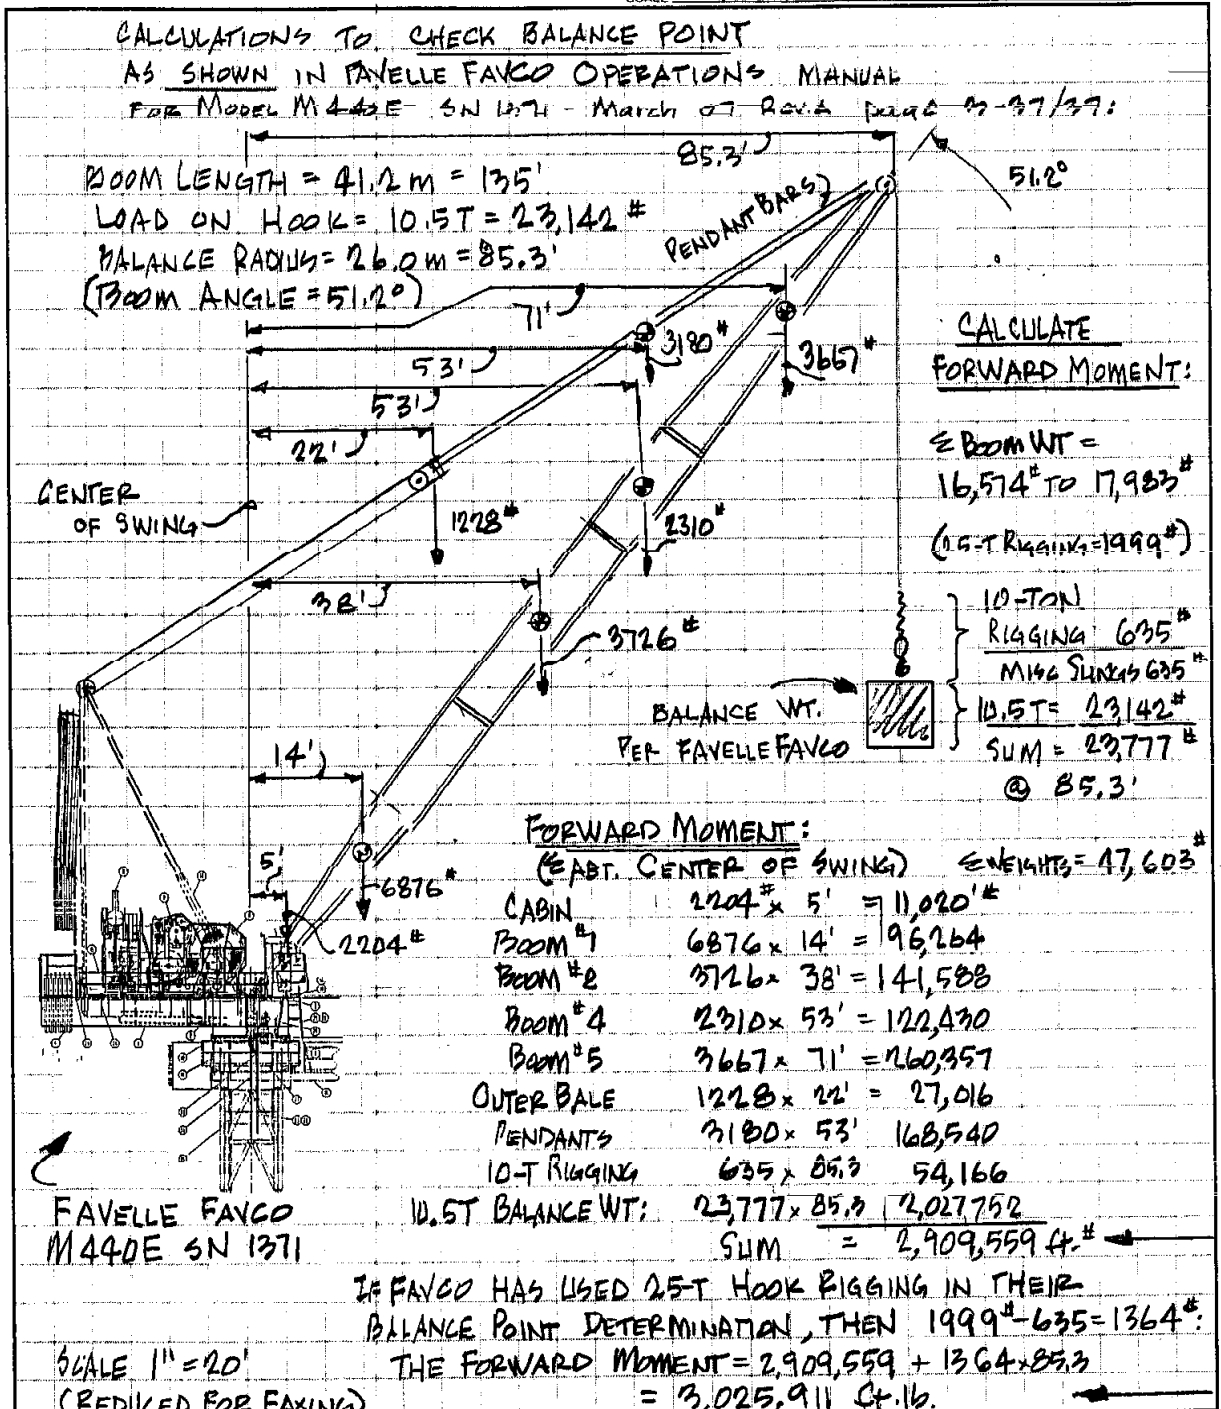 CALCULATIONS TO CHECK BALANCE POINT
AS SHOWN IN FAVELLE FAVCO OPERATIONS MANUAL
FOR MODEL M440E SN 1371 - March 07 Rev.A page 3-37/37:
85.3'
51.2°
BOOM LENGTH = 41.2 m = 135'
LOAD ON HOOK = 10.5T = 23,142#
BALANCE RADIUS = 26.0 m = 85.3'
(BOOM ANGLE = 51.2°)
PENDANT BARS
71'
53'
3180#
3667#
53'
22'
CENTER
OF SWING
1228#
2310#
38'
3726#
CALCULATE
FORWARD MOMENT:
Σ BOOM WT =
16,574# TO 17,983#
(25-T RIGGING=1999#)
10-TON
RIGGING 635#
MISC SLINGS 635#
10.5T = 23142#
SUM = 23,777#
@ 85.3'
BALANCE WT.
PER FAVELLE FAVCO
14'
5'
6876#
2204#
FORWARD MOMENT:
(Σ ABT. CENTER OF SWING) Σ WEIGHTS = 47,603#
CABIN 2204# x 5' = 11,020'#
BOOM #1 6876 x 14' = 96,264
BOOM #2 3726 x 38' = 141,588
BOOM #4 2310 x 53' = 122,430
BOOM #5 3667 x 71' = 260,357
OUTER BALE 1228 x 22' = 27,016
PENDANTS 3180 x 53' 168,540
10-T RIGGING 635 x 85.3 54,166
10.5T BALANCE WT: 23,777 x 85.3 2,027,752
SUM = 2,909,559 ft.#
FAVELLE FAVCO
M440E SN 1371
IF FAVCO HAS USED 25-T HOOK RIGGING IN THEIR
BALANCE POINT DETERMINATION, THEN 1999#-635=1364#:
THE FORWARD MOMENT = 2,909,559 + 1364x85.3
= 3,025,911 ft.lb.
SCALE 1" = 20'
(REDUCED FOR FAXING)